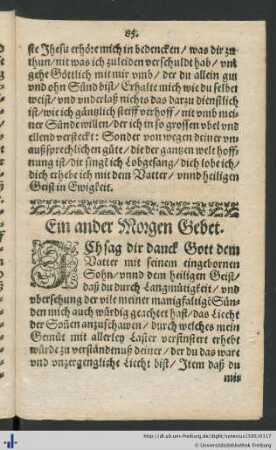 85.
ste Jhesu erhöre mich in bedencken / was dir zu
thun / nit was ich zuleiden verschuldt hab / vnd
gehe Göttlich mit mir vmb / der du allein gut
vnd ohn Sünd bist / Erhalte mich wie du selber
weist / vnd vnderlaß nichts das darzu dienstlich
ist / wie ich gäntzlich steiff verhoff / nit vmb mei-
ner Sünde willen / der ich in so grossen vbel vnd
ellend versteckt: Sonder von wegen deiner vn
außsprechlichen güte / die der gantzen welt hoff-
nung ist / dir singk ich Lobgesang / dich lobe ich /
dich erhebe ich mit dem Vatter / vnnd heiligen
Geist in Ewigkeit.
Ein ander Morgen Gebet.
ICh sag dir danck Gott dem
Vatter mit seinem eingebornen
Sohn / vnnd dem heiligen Geist /
daß du durch Langmütigkeit / vnd
vbersehung der vile meiner manigfaltigē Sün-
den mich auch würdig geachtet hast / das Liecht
der Soñen anzuschawen / durch welches mein
Gemüt mit allerley Laster verfinstert erhebt
würde zu verständtnuß deiner / der du das ware
vnd vnzergengliche Liecht bist / Item daß du
mir
http://dl.ub.uni-freiburg.de/diglit/synesius1595/0117
© Universitätsbibliothek Freiburg